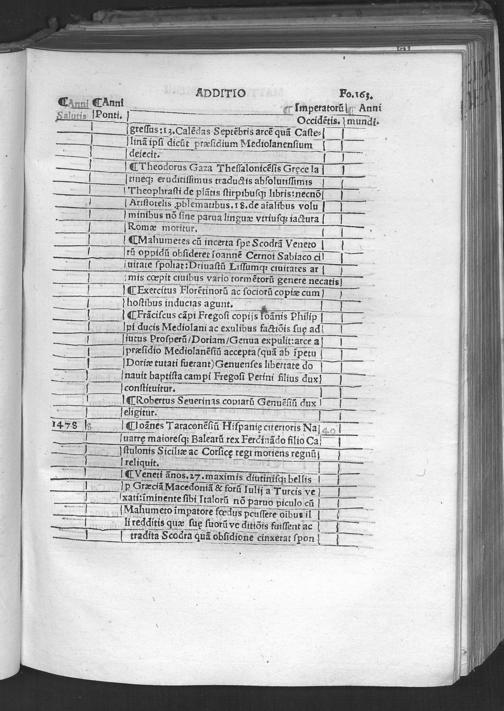 ADDITIO Fo.163.
¶Anni ¶Anni ¶Imperatorū ¶ Anni
Salutis Ponti. Occidētis. mundi.
gressus: 13. Calēdas Septēbris arcē quā Castel
linā ipsi dicūt præsidium Mediolanensium
deiecit.
¶Theodorus Gaza Thessalonicēsis Gręce la
tineq; eruditissimus traductis absolutissimis
Theophrasti de plātis stirpibusq; libris: necnō
Aristotelis ꝓblematibus. 18. de aīalibus volu
minibus nō sine parua linguæ vtriusq; iactura
Romæ moritur.
¶Mahumetes cū incerta spe Scodrā Veneto
rū oppidū obsideret Ioannē Cernoi Sabiaco ci
uitate spoliat: Driuastū Lissumq; ciuitates ar
mis cœpit ciuibus vario tormētorū genere necatis
¶Exercitus Florētinorū ac sociorū copiæ cum
hostibus inducias agunt.
¶Frāciscus cāpi Fregosi copijs Ioānis Philip
pi ducis Mediolani ac exulibus factiōis suę ad
iutus Prosperū Doriam Genua expulit: arce a
præsidio Mediolanēsiū accepta (quā ab īpetu
Doriæ tutati fuerant) Genuenses libertate do
nauit baptista campi Fregosi Perini filius dux
constituitur.
¶Robertus Seuerinas copiarū Genuēsiū dux
eligitur.
1478 ¶Ioānes Taraconēsiū Hispanię citerioris Na 40
uarrę maioresq; Balearū rex Ferdinādo filio Ca
stulonis Siciliæ ac Corsicę regi moriens regnū
reliquit.
¶Veneti ānos. 27. maximis diutinisq; bellis
p Græciā Macedoniā & forū Iulij a Turcis ve
xati: iminente sibi Italorū nō paruo piculo cū
Mahumeto impatore fœdus pcussere oibus il
li redditis quæ suę suorū ve ditiōis fuissent ac
tradita Scodra quā obsidione cinxerat spon